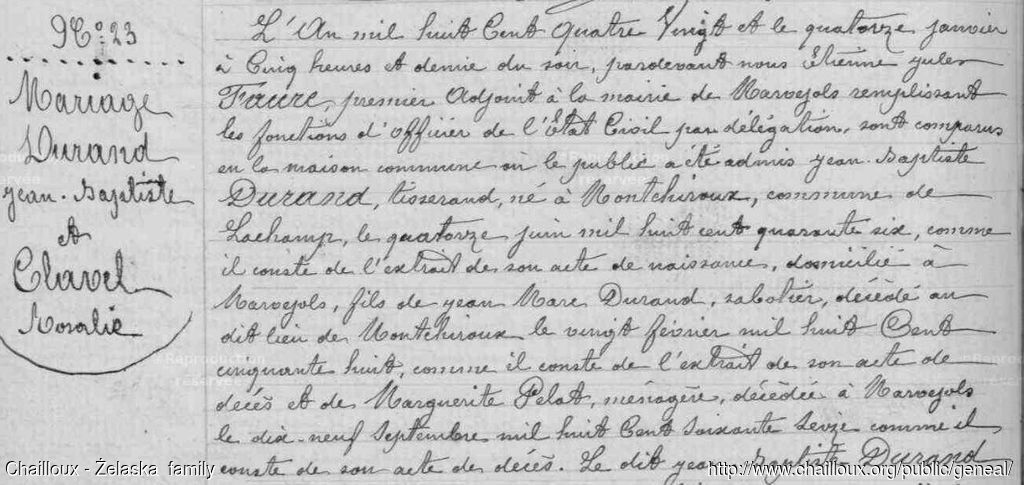 No. 23
Mariage
Durand
jean-Baptiste
et
Clavel
Rosalie
L'An mil huit Cent quatre Vingt et le quatorze janvier
à Cinq heures et demie du soir, pardevant nous Etienne jules
Faure, premier Adjoint à la mairie de Marvejols remplissant
les fonctions d'officier de l'Etat Civil par délégation, sont comparus
en la maison commune où le public a été admis jean-Baptiste
Durand, tisserand, né à Montchiroux, commune de
Lachamp, le quatorze juin mil huit cent quarante six, comme
il conste de l'extrait de son acte de naissance, domicilié à
Marvejols, fils de jean Marc Durand, sabotier, décèdé au
dit lieu de Montchiroux le vingt février mil huit Cent
cinquante huit, comme il conste de l'extrait de son acte de
décès et de Marguerite Pelat, ménagère, décèdée à Marvejols
le dix-neuf Septembre mil huit Cent soixante seize comme il
conste de son acte de décès. Le dit jean-Baptiste Durand
Chailloux - Żelaska family
http://www.chailloux.org/public/geneal/